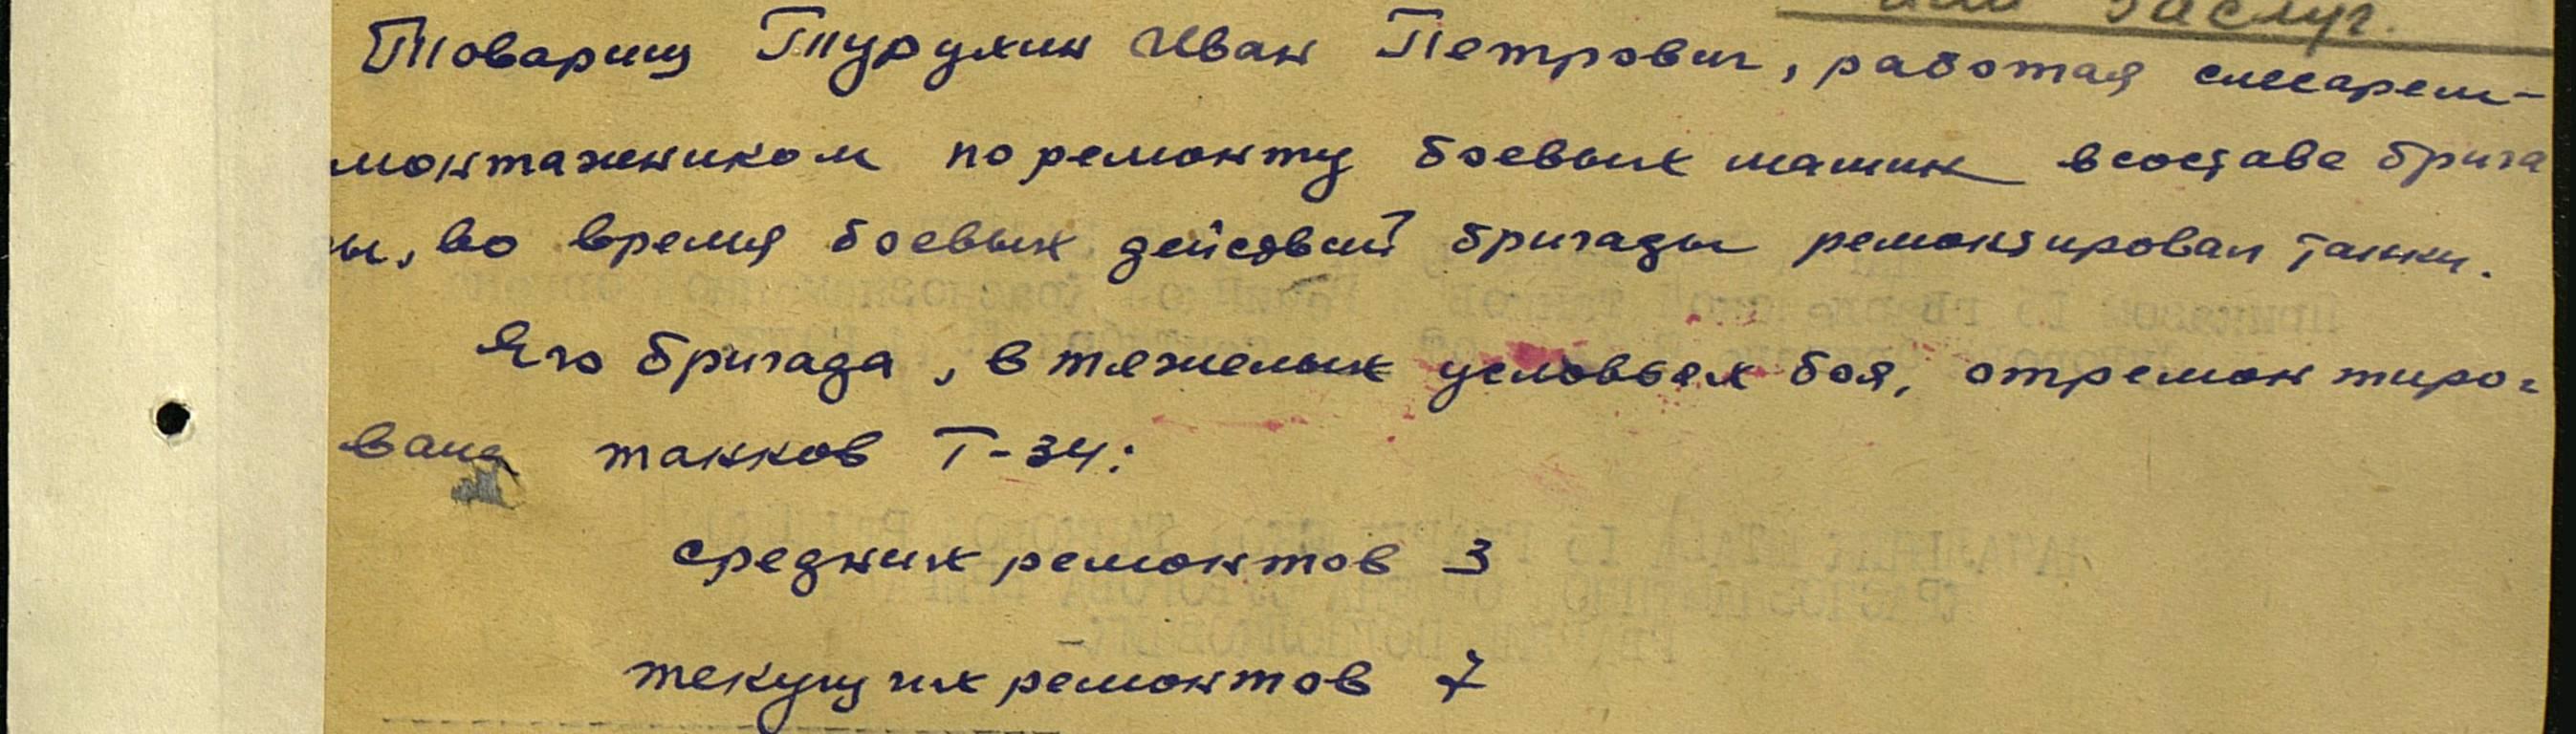 или заслуг.
Товарищ Турухин Иван Петрович, работая слесарем-
монтажником по ремонту боевых машин в составе брига
ы, во время боевых действий бригады ремонтировал танки.
Его бригада, в тяжелых условьях боя, отремонтиро-
вала танков Т-34:
средних ремонтов 3
текущих ремонтов 7